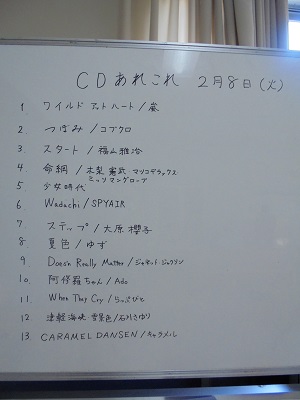 CDあれこれ 2月8日(火)
1 ワイルド アット ハート/嵐
2 つぼみ/コブクロ
3. スタート/福山雅治
4. 命綱/木梨憲武 マツコデラックス
ミッツマングローブ
5 少女時代
6 Wadachi/SPYAIR
7 ステップ/大原櫻子
8. 夏色/ゆず
9 Doesn Really Matter/ジャネット・ジャクソン
10. 阿修羅ちゃん/Ado
11. When They Cry/らっぷびと
12 津軽海峡・雪景色/石川さゆり
13 CARAMELDANSEN/キャラメル